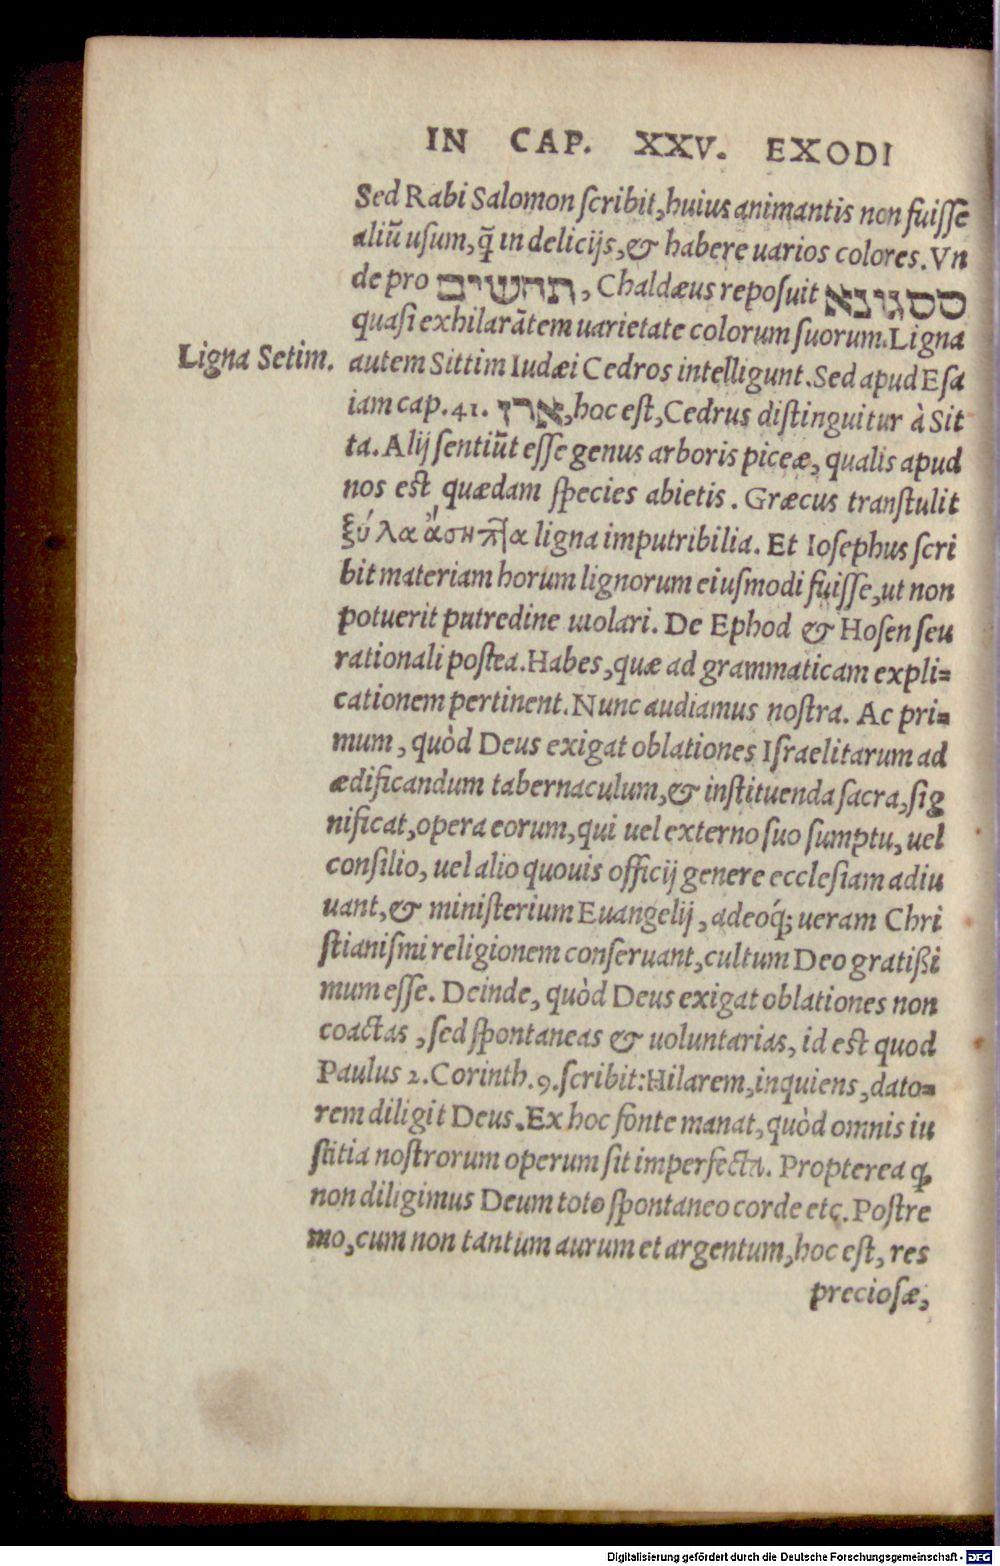 IN CAP. XXV. EXODI
Sed Rabi Salomon ſcribit, huius animantis non fuiſſe
aliũ uſum, q̃ in delicijs, & habere uarios colores. Vn
de pro תחשים, Chaldæus reposuit ססגונא
quaſi exhilarãtem uarietate colorum ſuorum. Ligna
Ligna Setim.
autem Sittim Iudæi Cedros intelligunt. Sed apud Eſa
iam cap. 41. ארז, hoc eſt, Cedrus diſtinguitur à Sit
ta. Alij ſentiũt eſſe genus arboris piceæ, qualis apud
nos eſt quædam ſpecies abietis. Græcus tranſtulit
ξύλα ἄσηπτα ligna imputribilia. Et Ioſephus ſcri
bit materiam horum lignorum eiuſmodi fuiſſe, ut non
potuerit putredine uiolari. De Ephod & Hoſen ſeu
rationali poſtea. Habes, quæ ad grammaticam expli=
cationem pertinent. Nunc audiamus noſtra. Ac pri=
mum, quòd Deus exigat oblationes Iſraelitarum ad
ædificandum tabernaculum, & inſtituenda ſacra, ſig
nificat, opera eorum, qui uel externo ſuo ſumptu, uel
conſilio, uel alio quouis officij genere eccleſiam adiu
uant, & miniſterium Euangelij, adeoq́; ueram Chri
ſtianiſmi religionem conſeruant, cultum Deo gratißi
mum eſſe. Deinde, quòd Deus exigat oblationes non
coactas, ſed ſpontaneas & uoluntarias, id eſt quod
Paulus 2. Corinth. 9. ſcribit: Hilarem, inquiens, dato=
rem diligit Deus. Ex hoc fonte manat, quòd omnis iu
ſtitia noſtrorum operum ſit imperfecta. Propterea ꝙ
non diligimus Deum toto ſpontaneo corde etc. Poſtre
mo, cum non tantum aurum et argentum, hoc eſt, res
precioſæ,
Digitalisierung gefördert durch die Deutsche Forschungsgemeinschaft - DFG